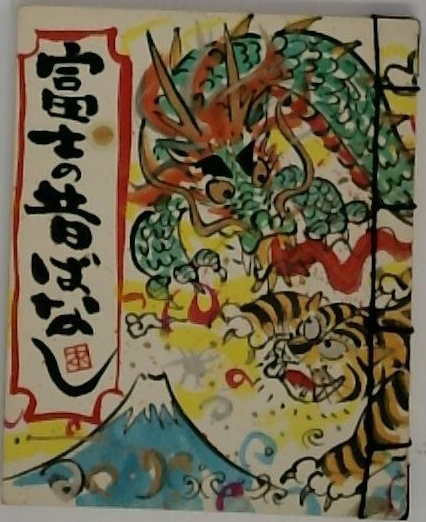 富士の昔ばなし